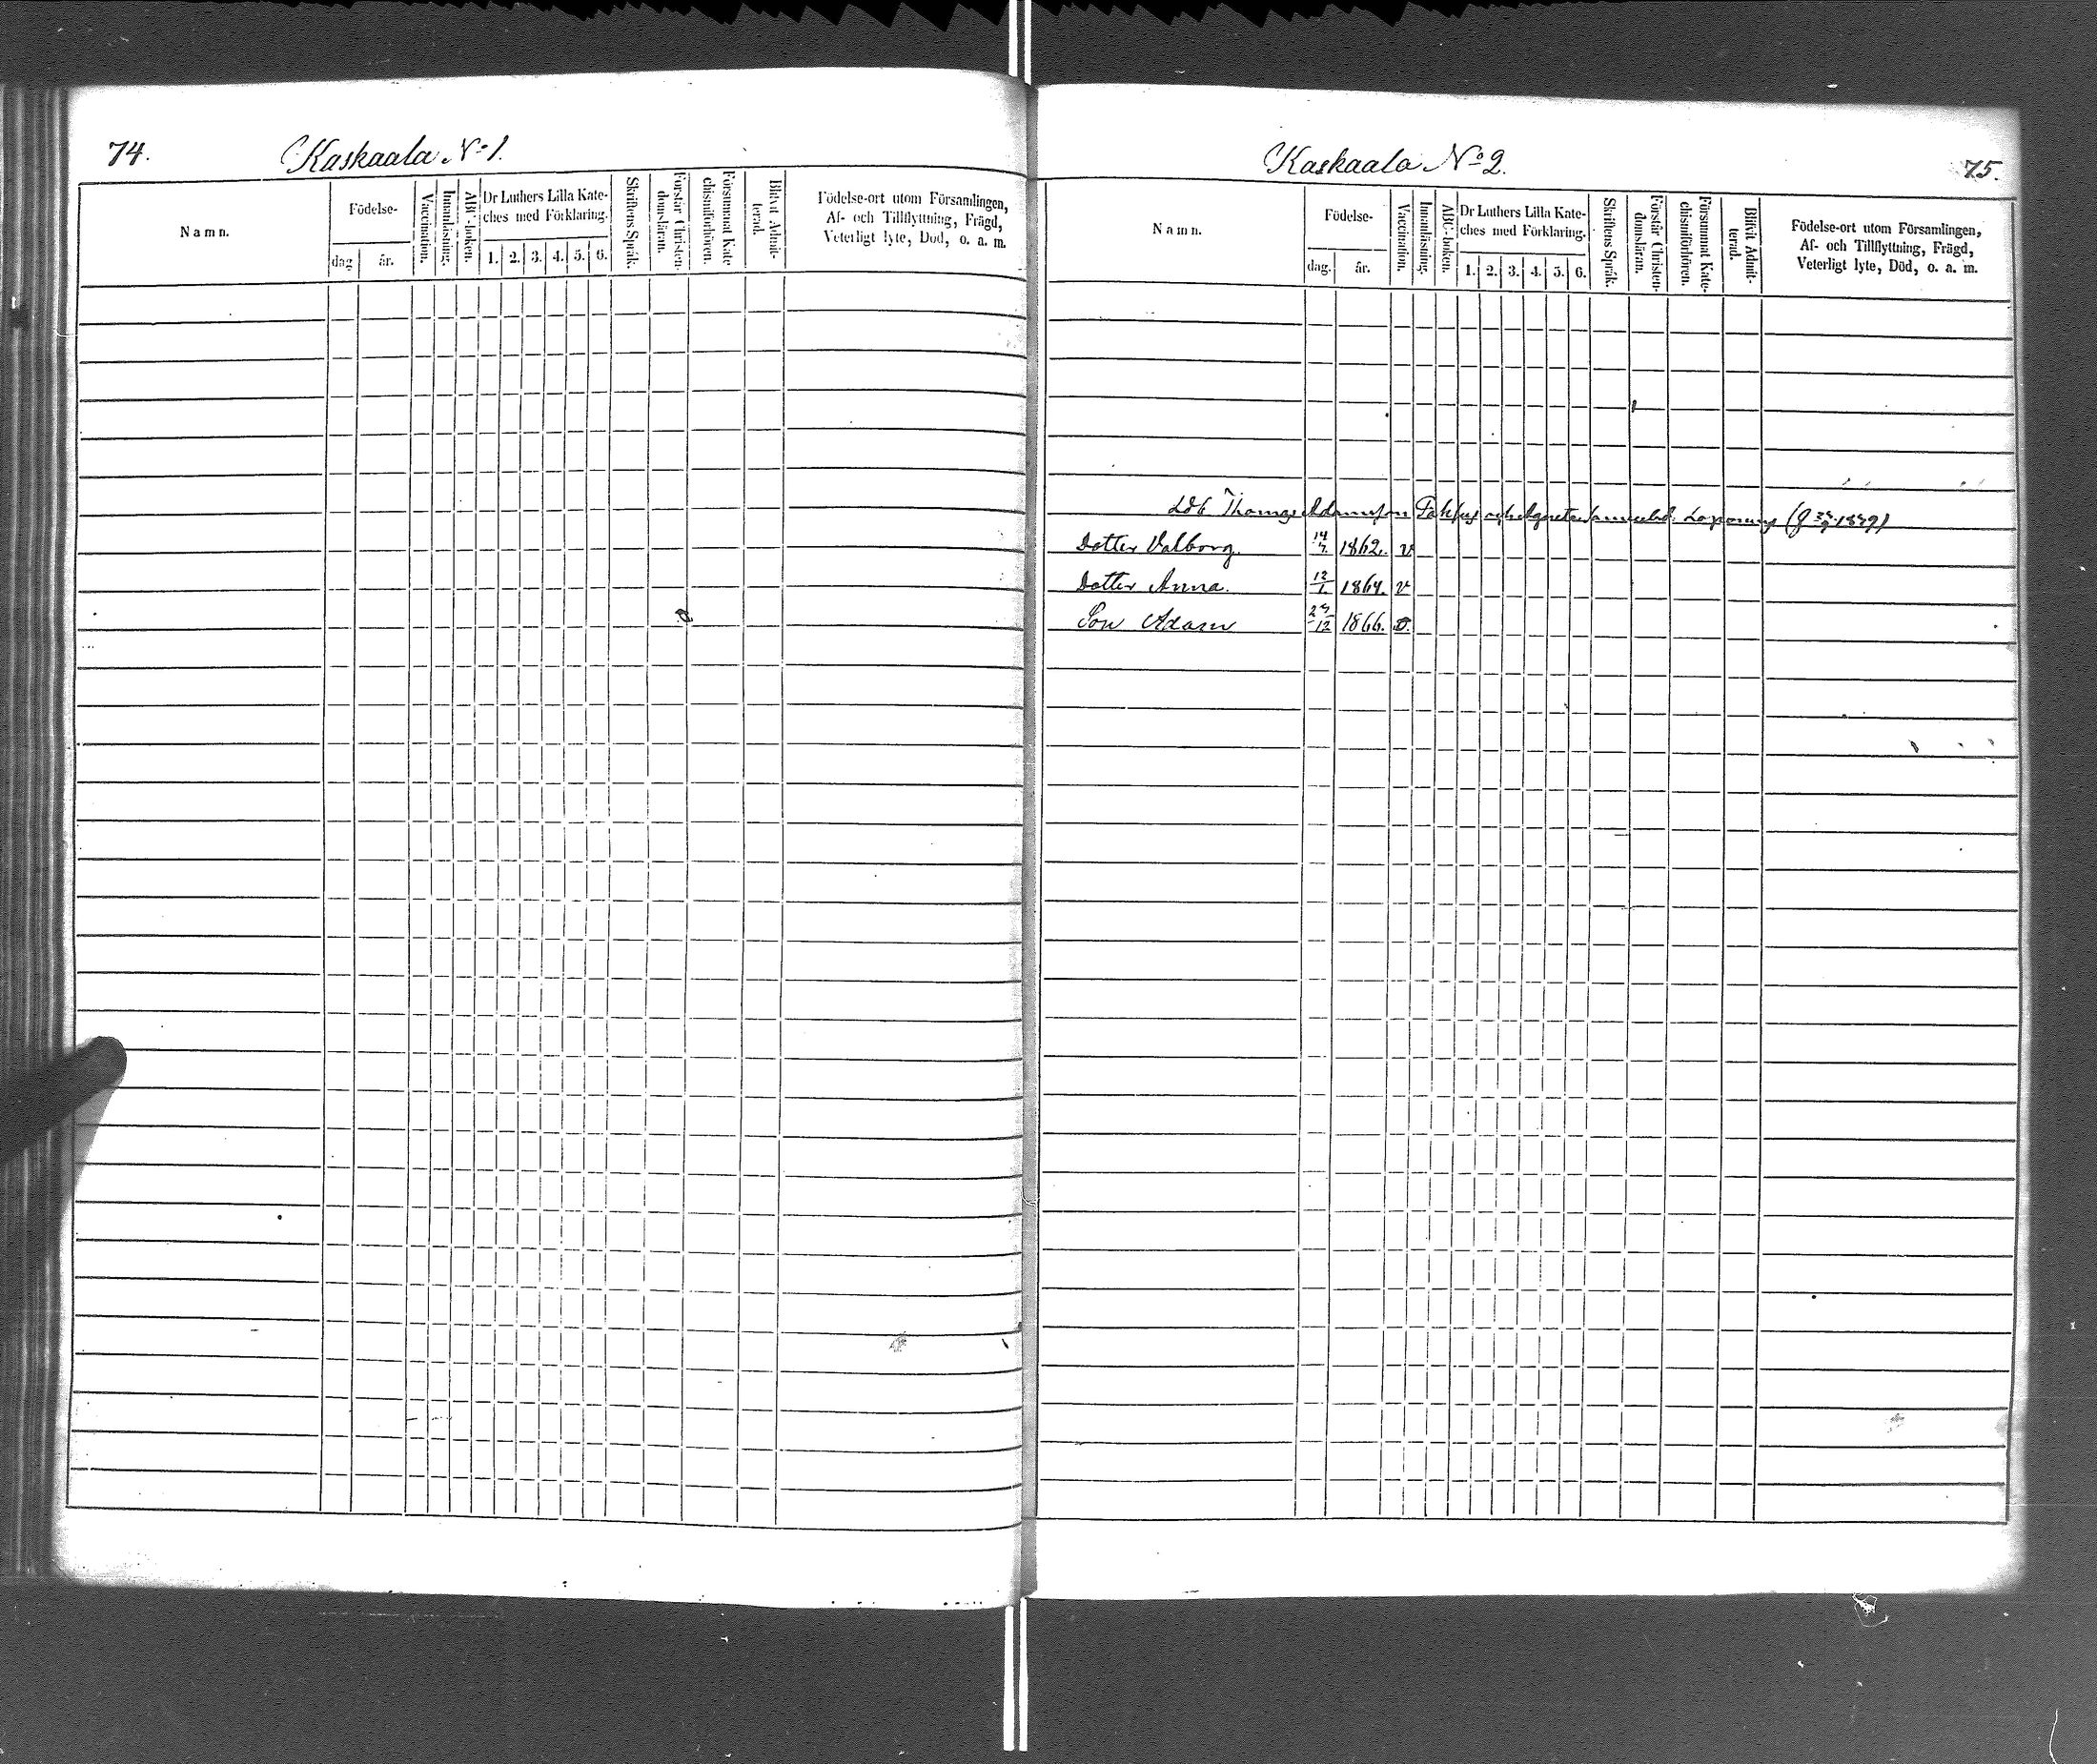 74.
Kaskaala No 1.
Namn.
Födelse-
dag
år.
Vaccination.
Innanläsning.
ABC-boken.
Dr Luthers Lilla Kate-
ches med Förklaring.
1. 2. 3. 4. 5. 6.
Skriftens Språk.
Förstår Christen-
domsläran.
Försummat Kate-
chismiförhören.
Blifvit Admit-
terad.
Födelse-ort utom Församlingen,
Af- och Tillflyttning, Frägd,
Veterligt lyte, Död, o. a. m.
Kaskaala No 2.
75.
Namn.
Födelse-
dag.
år.
Vaccination.
Innanläsning.
ABC-boken.
Dr Luthers Lilla Kate-
ches med Förklaring.
1. 2. 3. 4. 5. 6.
Skriftens Språk.
Förstår Christen-
domsläran.
Försummat Kate-
chismiförhören.
Blifvit Admit-
terad.
Födelse-ort utom Församlingen,
Af- och Tillflyttning, Frägd,
Veterligt lyte, Död, o. a. m.
Thomas Adamsson och Agneta
Dotter Valborg. 14/7. 1862. v
Dotter Anna. 12/1. 1864. v
Son Adam 27/12 1866. v.